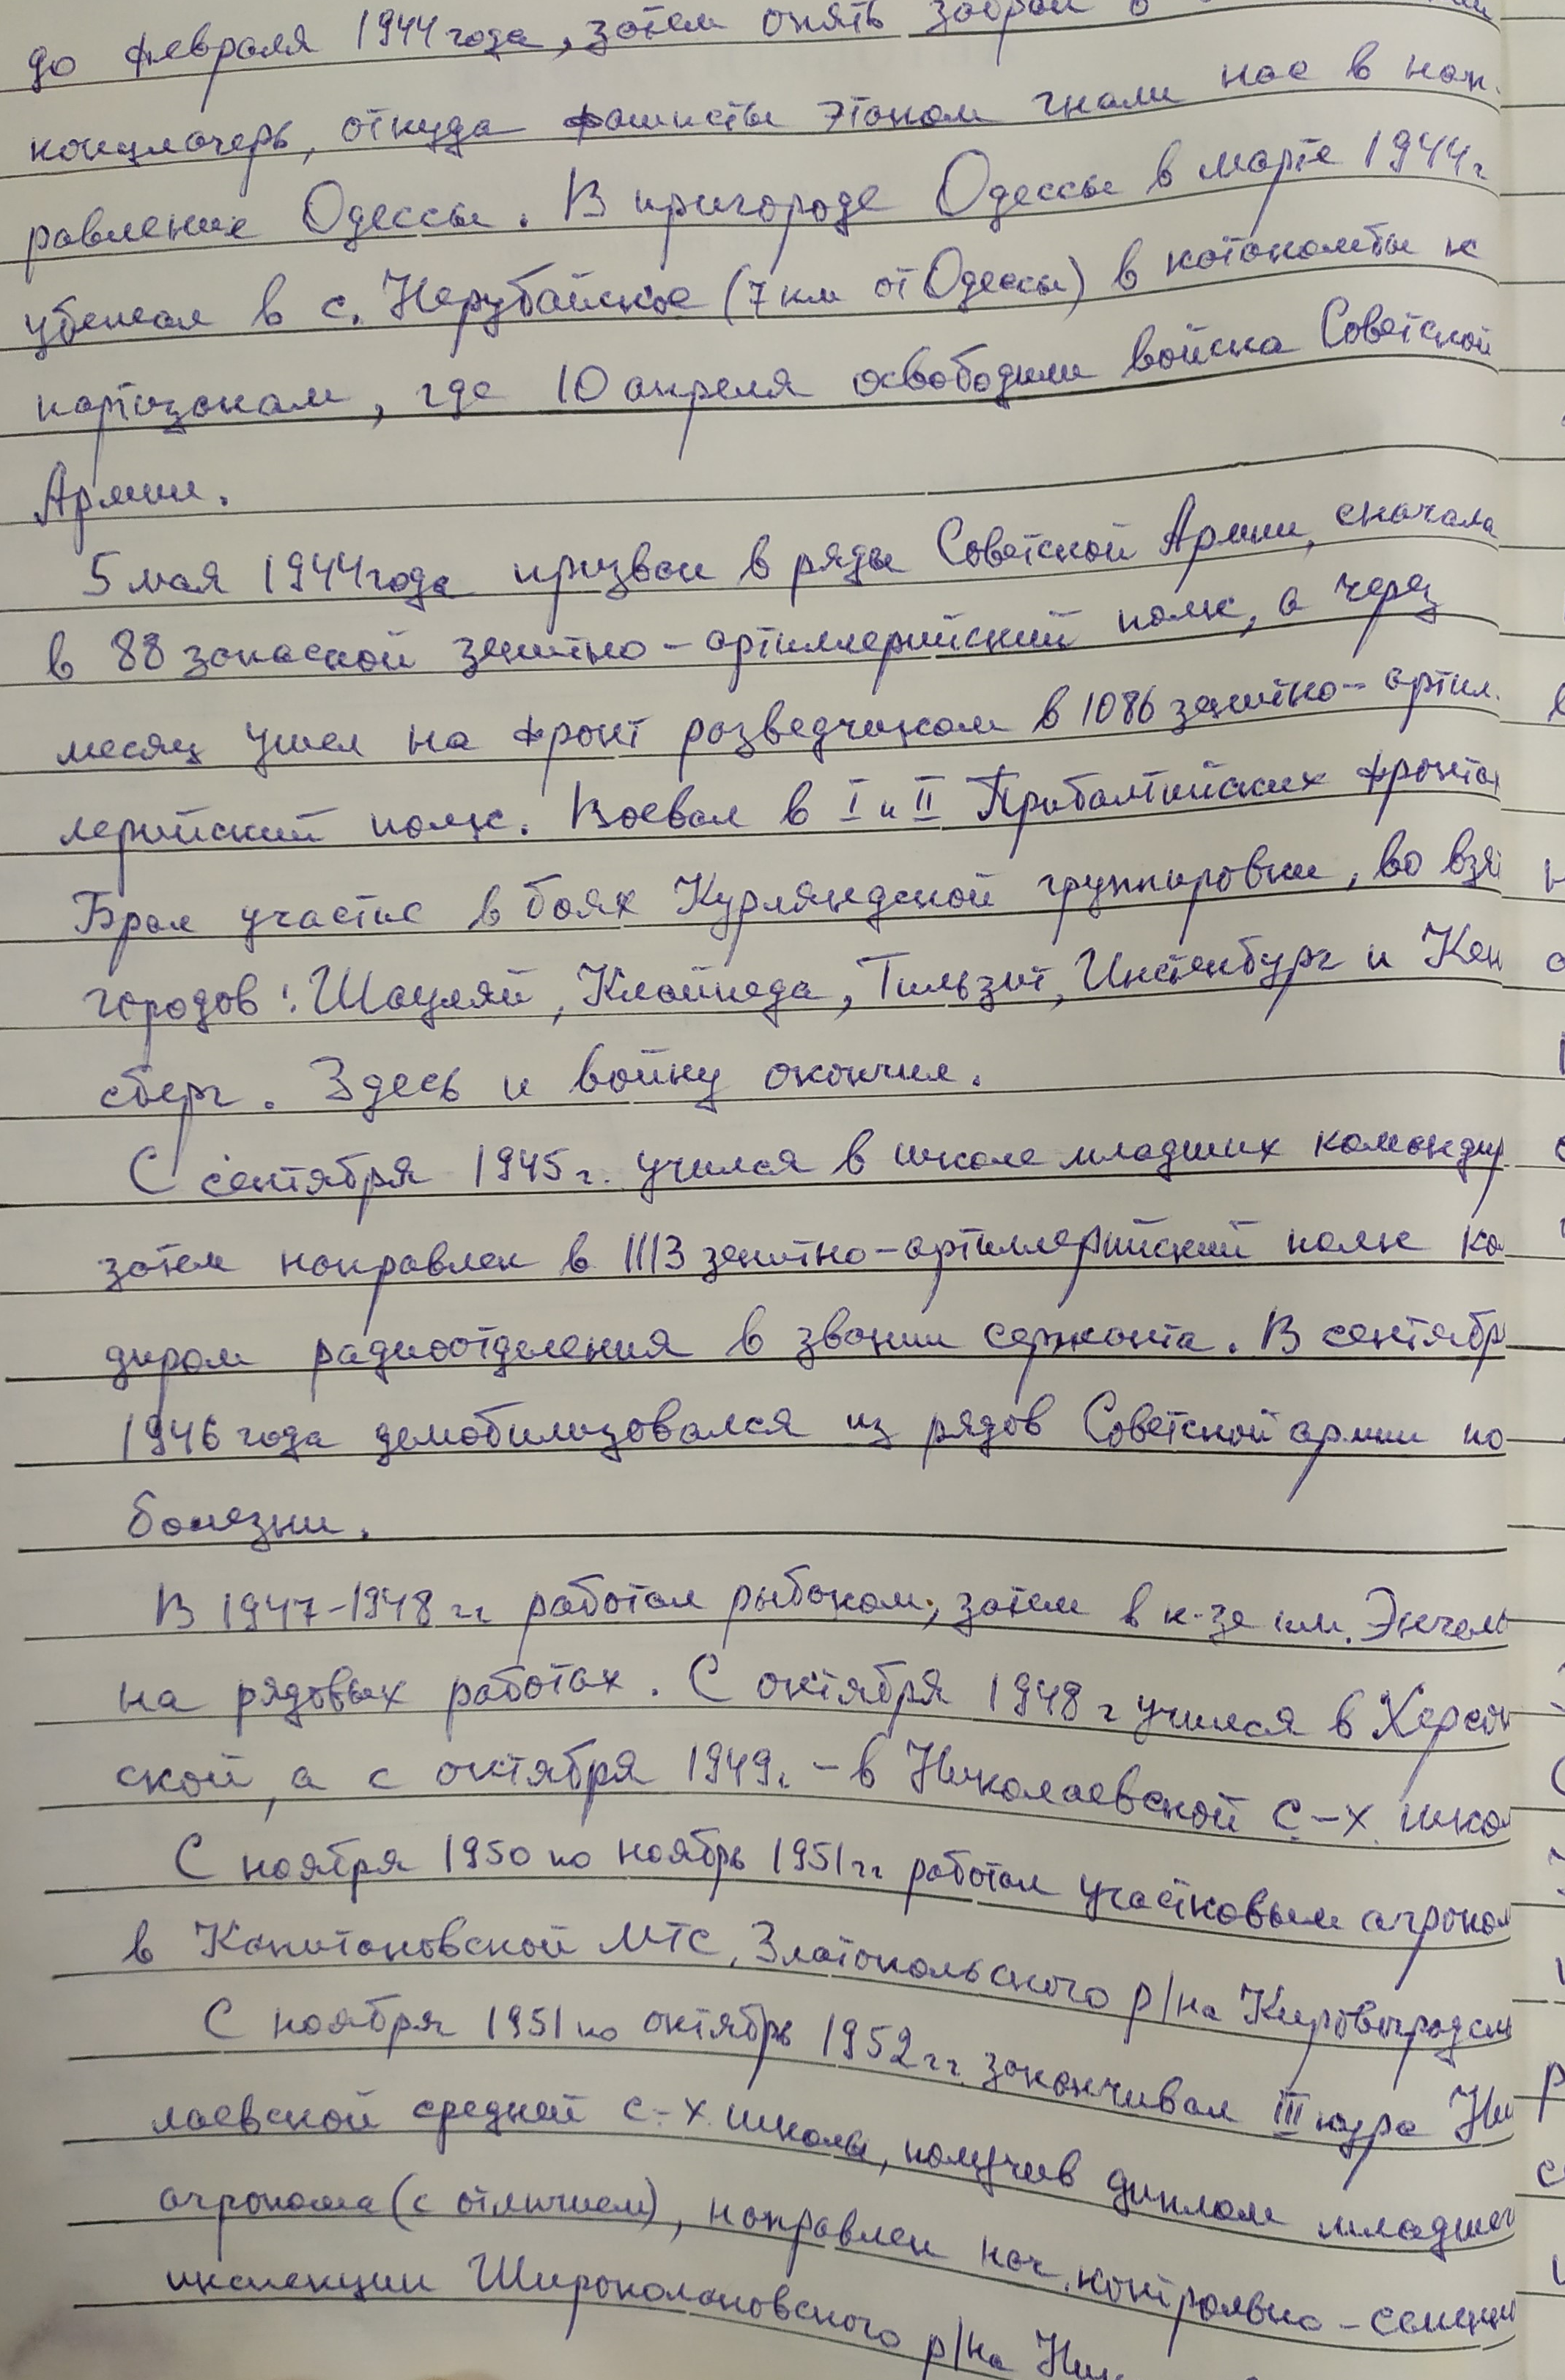 до февраля 1944 года, затем опять забрал в
концлагерь, откуда фашисты этапом гнали нас в нап-
равление Одессы. В пригороде Одессы в марте 1944 г
убежал в с. Нерубайское (7 км от Одессы) в катакомбы к
партизанам, где 10 апреля освободили войска Советской
Армии.
5 мая 1944 года призван в ряды Советской Армии, сначала
в 88 запасной зенитно-артиллерийский полк, а через
месяц ушел на фронт разведчиком в 1086 зенитно-артил-
лерийский полк. Воевал в I и II Прибалтийских фронтах
Брал участие в боях Курляндской группировки, во взя
городов: Шауляй, Клайпеда, Тильзит, Инстенбург и Кен
сберг. Здесь и войну окончил.
С сентября 1945 г. учился в школе младших командир
затем направлен в 1113 зенитно-артиллерийский полк ко
диром радиоотделения в звании сержанта. В сентябр
1946 года демобилизовался из рядов Советской армии по
болезни.
В 1947-1948 гг работал рыбаком, затем в к-зе им. Энгель
на рядовых работах. С октября 1948 г учился в Херсон
ской, а с октября 1949 г. - в Николаевской с-х. школ
С ноября 1950 по ноябрь 1951 гг работал участковым агроном
в Капитановской МТС, Златопольского р/на Кировоградск
С ноября 1951 по октябрь 1952 гг. заканчивал III курс Ни
лаевской средней с-х. школы, получив диплом младшег
агронома (с отличием), направлен нач. контрольно-семенн
инспекции Широколановского р/на Ник